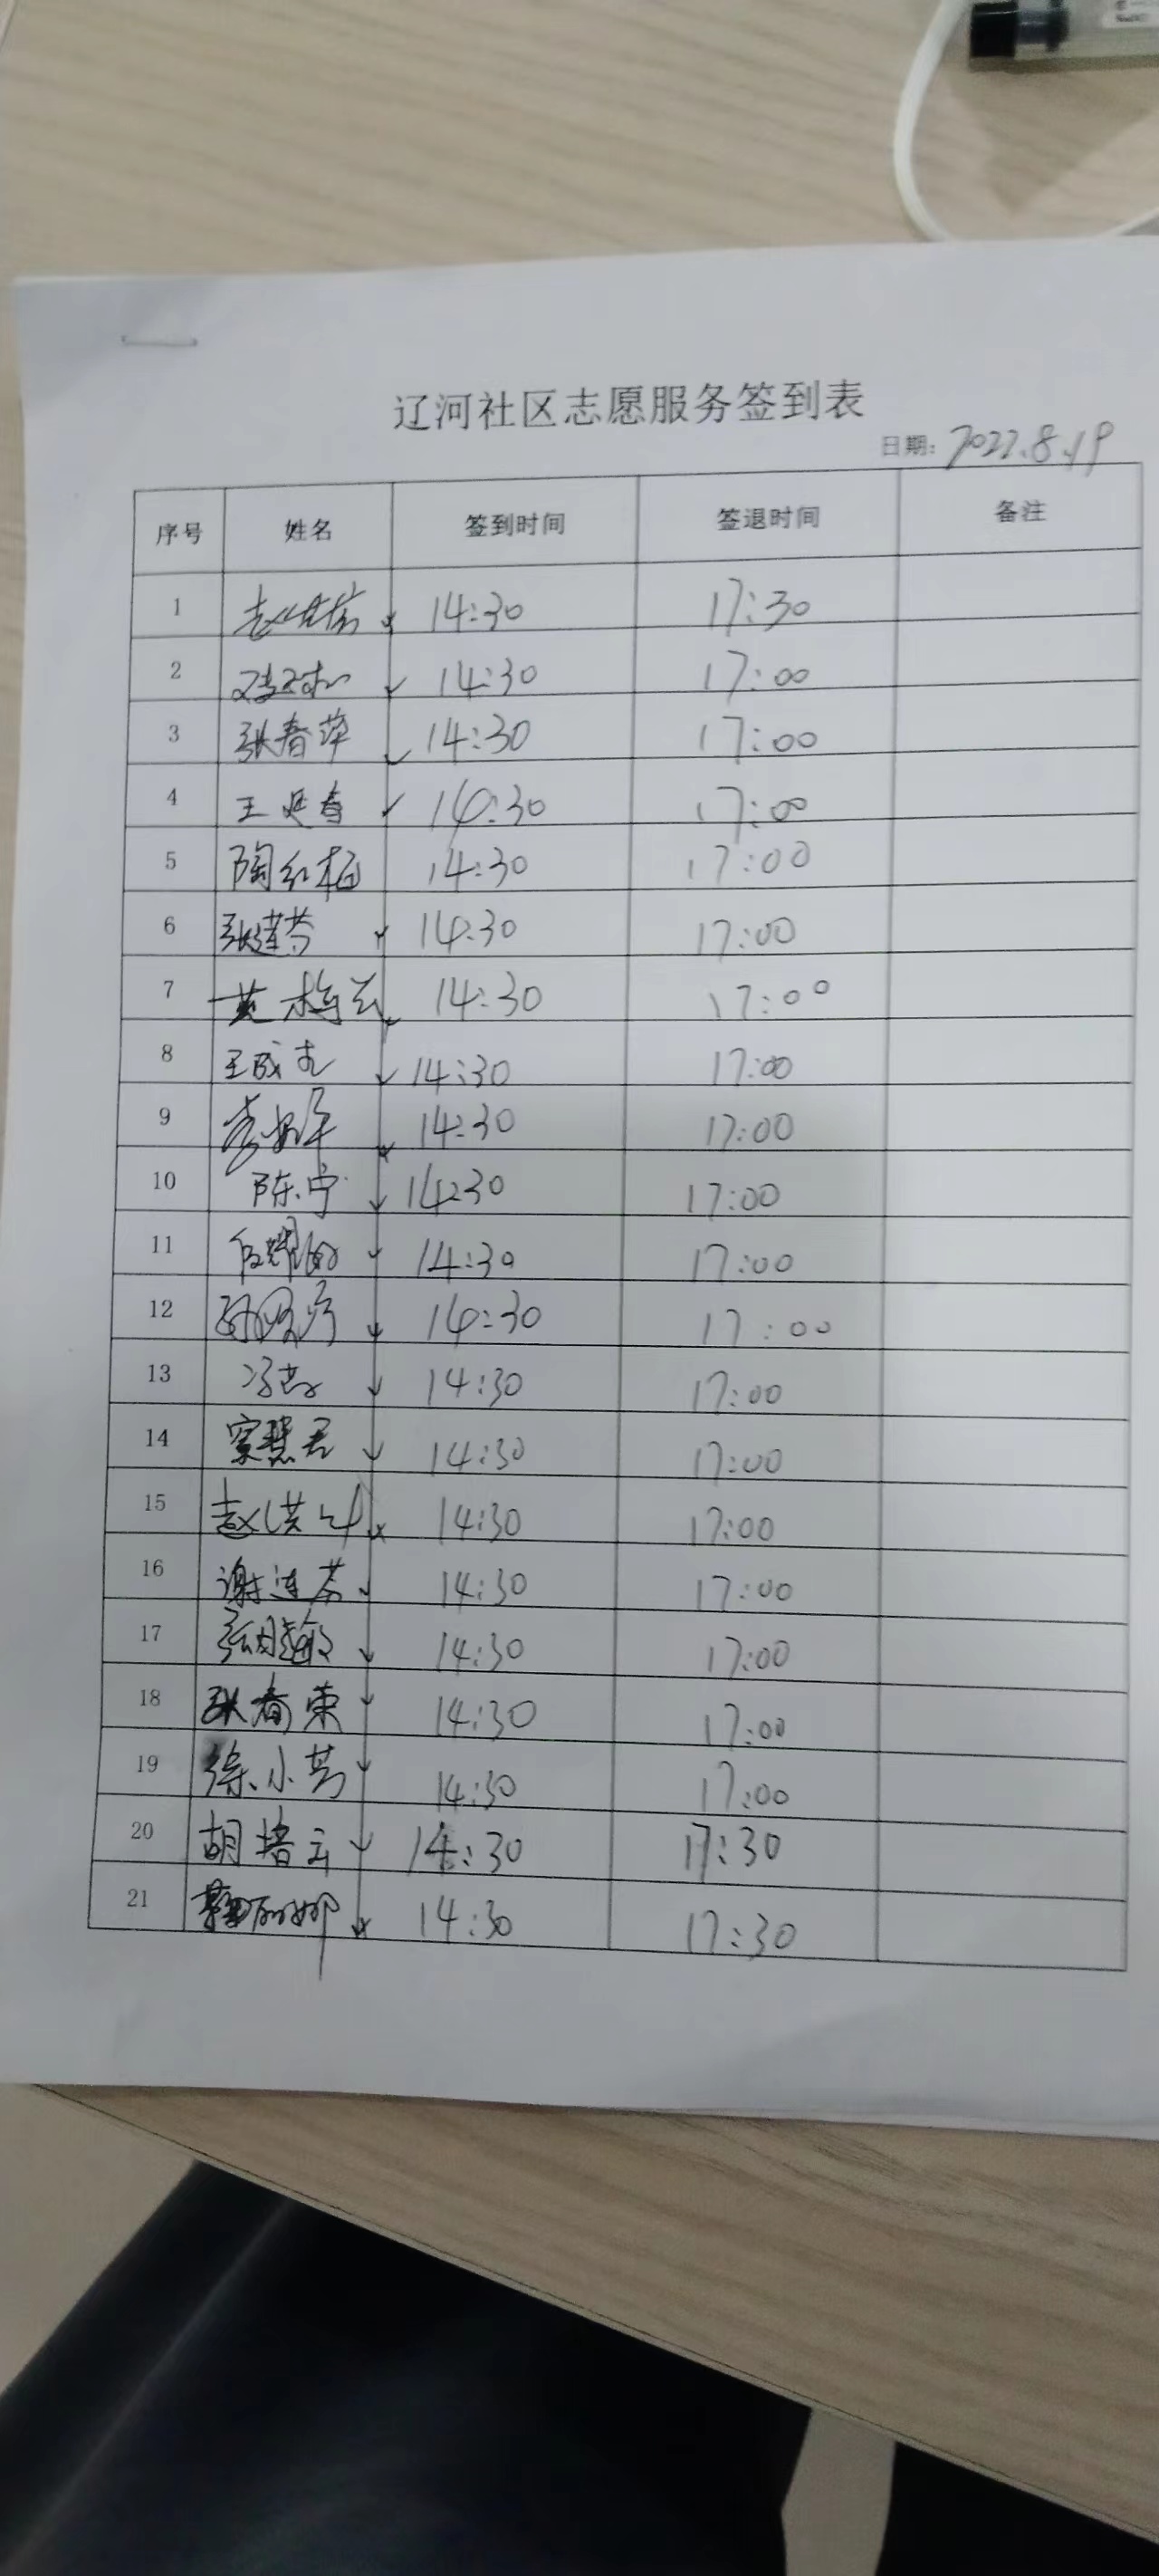 辽河社区志愿服务签到表
日期: 2022.8.19
序号 姓名 签到时间 签退时间 备注
1 14:30 17:30
2 14:30 17:00
3 张春萍 14:30 17:00
4 王延春 14:30 17:00
5 陶红梅 14:30 17:00
6 张莲芬 14:30 17:00
7 黄梅云 14:30 17:00
8 王成 14:30 17:00
9 李 14:30 17:00
10 陈宁 14:30 17:00
11 14:30 17:00
12 孙 14:30 17:00
13 冯 14:30 17:00
14 窦慧君 14:30 17:00
15 赵洪 14:30 17:00
16 谢连芬 14:30 17:00
17 张 14:30 17:00
18 张春東 14:30 17:00
19 徐小芳 14:30 17:00
20 胡培云 14:30 17:30
21 娜 14:30 17:30